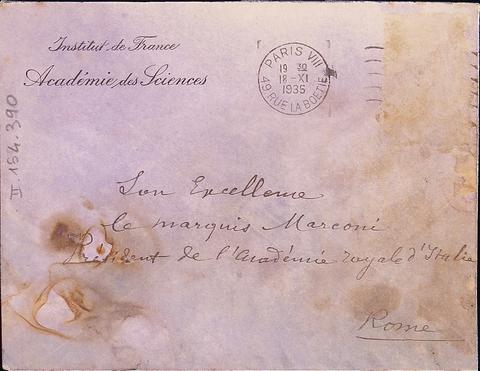 Institut de France
Académie des Sciences
PARIS VIII
19 30
18-XI
1935
49 RUE LA BOETIE
II.154.390
Son Excellence
le marquis Marconi
Président de l'Académie royale d'Italie
Rome